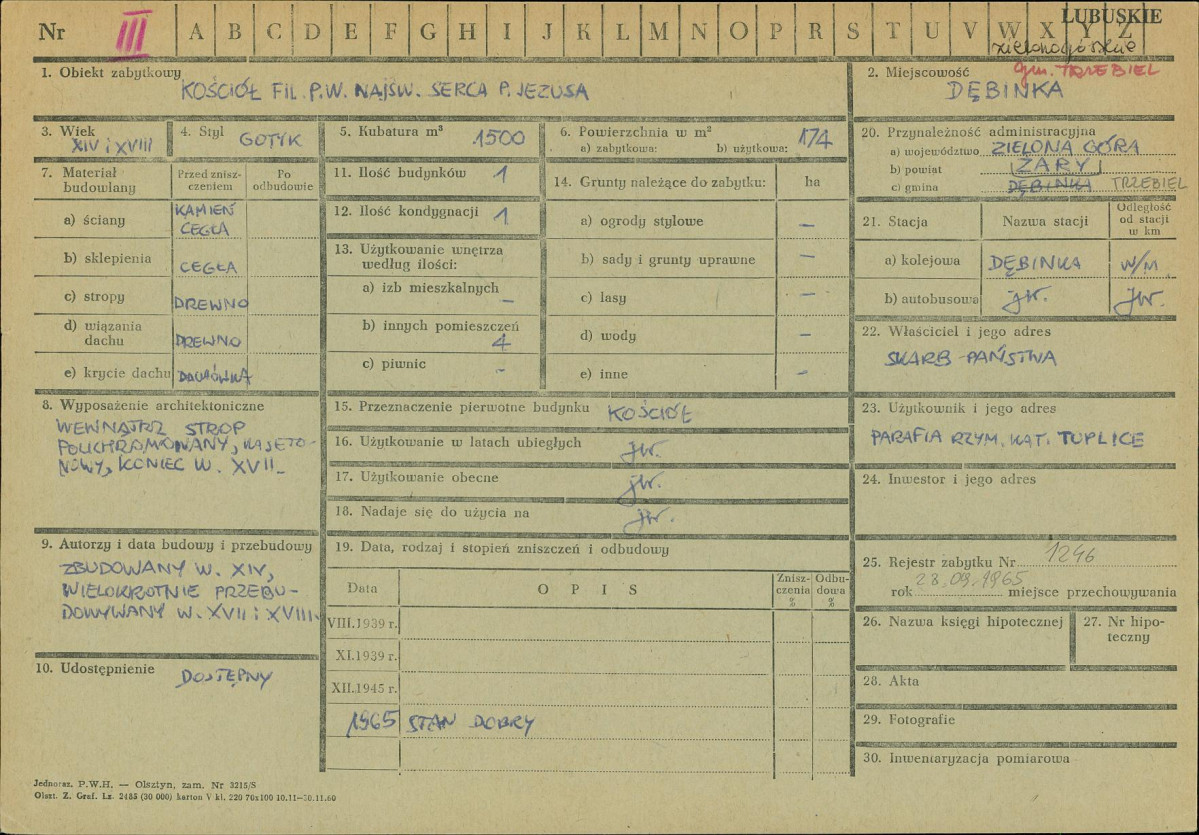 Nr III A B C D E F G H I J K L M N O P R S T U V W X Y Z LUBUSKIE
zielonogórskie
1. Obiekt zabytkowy
KOŚCIÓŁ FIL. P.W. NAJŚW. SERCA P. JEZUSA
2. Miejscowość gm. TRZEBIEL
DĘBINKA
3. Wiek
XIV i XVIII
4. Styl
GOTYK
5. Kubatura m³
1500
6. Powierzchnia w m²
a) zabytkowa: b) użytkowa: 174
7. Materiał budowlany
Przed zniszczeniem
Po odbudowie
a) ściany KAMIEŃ
CEGŁA
b) sklepienia CEGŁA
c) stropy DREWNO
d) wiązania
dachu DREWNO
e) krycie dachu DACHÓWKA
8. Wyposażenie architektoniczne
WEWNĄTRZ STROP
POLICHROMOWANY, KASETO-
NOWY, KONIEC W. XVII
9. Autorzy i data budowy i przebudowy
ZBUDOWANY W. XIV,
WIELOKROTNIE PRZEBU-
DOWYWANY W. XVII i XVIII.
10. Udostępnienie DOSTĘPNY
11. Ilość budynków 1
12. Ilość kondygnacji 1
13. Użytkowanie wnętrza
według ilości:
a) izb mieszkalnych
–
b) innych pomieszczeń
4
c) piwnic -
14. Grunty należące do zabytku: ha
a) ogrody stylowe –
b) sady i grunty uprawne –
c) lasy –
d) wody –
e) inne –
15. Przeznaczenie pierwotne budynku KOŚCIÓŁ
16. Użytkowanie w latach ubiegłych jw.
17. Użytkowanie obecne jw.
18. Nadaje się do użycia na jw.
19. Data, rodzaj i stopień zniszczeń i odbudowy
Data O P I S Zniszczenia % Odbudowa %
VIII.1939 r.
XI.1939 r.
XII.1945 r.
1965 STAN DOBRY
20. Przynależność administracyjna
a) województwo ZIELONA GÓRA
b) powiat ŻARY
c) gmina DĘBINKA TRZEBIEL
21. Stacja Nazwa stacji Odległość
od stacji
w km
a) kolejowa DĘBINKA W/M
b) autobusowa jw. jw.
22. Właściciel i jego adres
SKARB PAŃSTWA
23. Użytkownik i jego adres
PARAFIA RZYM. KAT. TUPLICE
24. Inwestor i jego adres
25. Rejestr zabytku Nr 1246
rok 28.09.1965 miejsce przechowywania
26. Nazwa księgi hipotecznej
27. Nr hipo-
teczny
28. Akta
29. Fotografie
30. Inwentaryzacja pomiarowa
Jednoraz. P.W.H. — Olsztyn, zam. Nr 3215/S
Olszt. Z. Graf. Lz. 2485 (30 000) karton V kl. 220 70x100 10.11—30.11.60